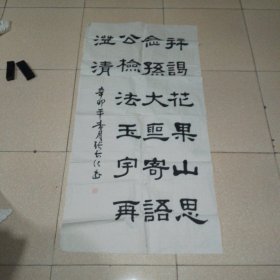 拜謁花果山思
念孫大聖寄語
公檢法玉宇再
澄清
辛卯年